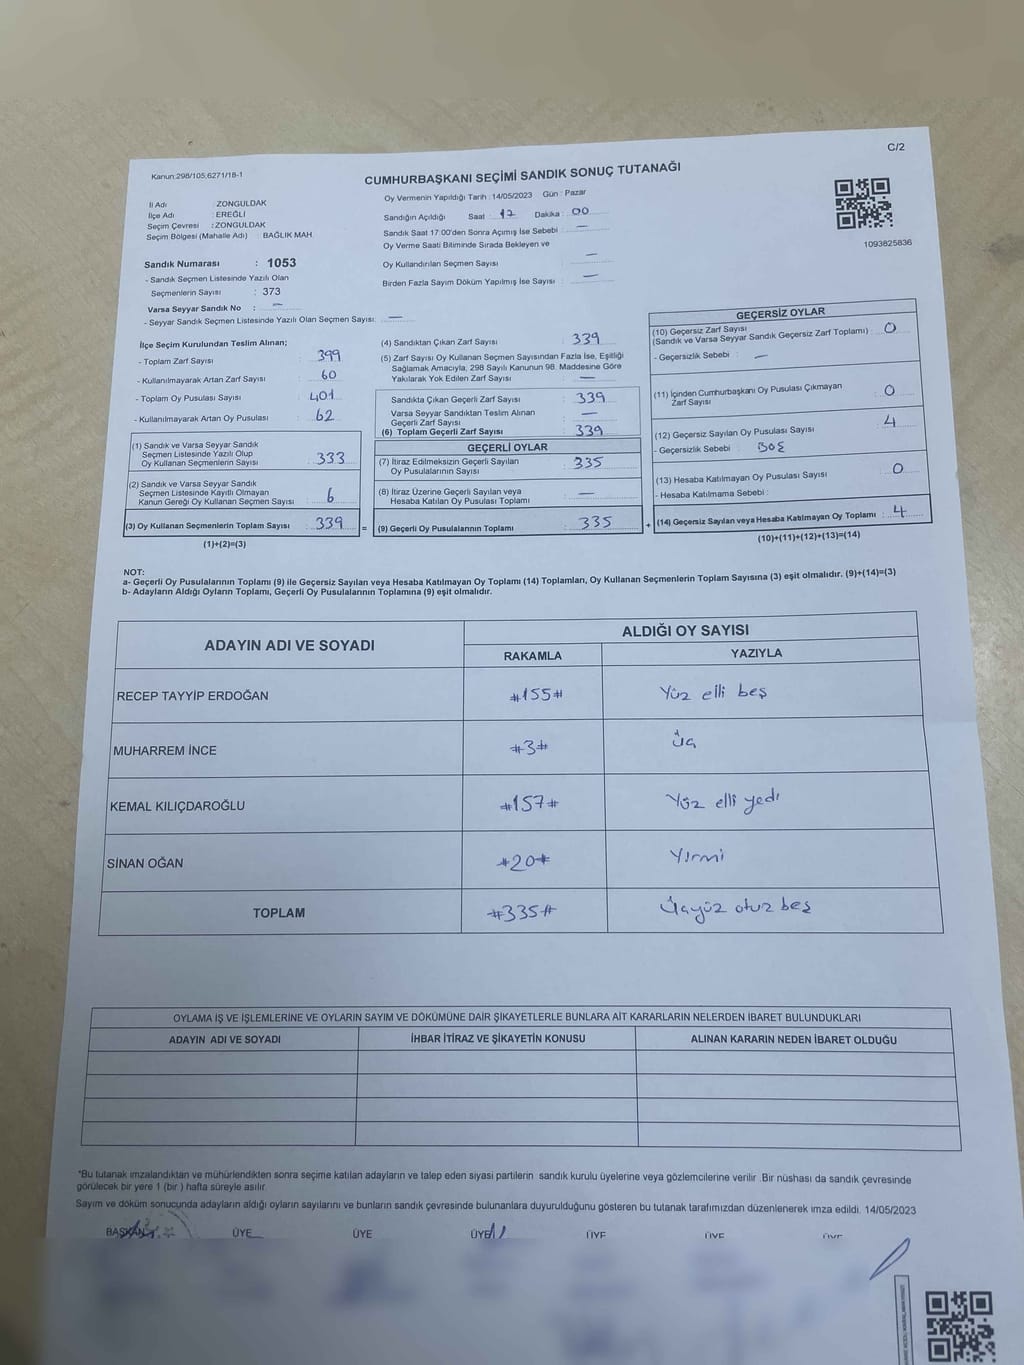 C/2
Kanun:298/105,6271/18-1
CUMHURBAŞKANI SEÇİMİ SANDIK SONUÇ TUTANAĞI
İl Adı : ZONGULDAK
İlçe Adı : EREĞLİ
Seçim Çevresi : ZONGULDAK
Seçim Bölgesi (Mahalle Adı) : BAĞLIK MAH.
Oy Vermenin Yapıldığı Tarih : 14/05/2023 Gün : Pazar
Sandığın Açıldığı Saat : 17 Dakika : 00
Sandık Saat 17:00'den Sonra Açımış İse Sebebi : —
Oy Verme Saati Bitiminde Sırada Bekleyen ve
Oy Kullandırılan Seçmen Sayısı : —
Birden Fazla Sayım Döküm Yapılmış İse Sayısı : —
1093825836
Sandık Numarası : 1053
- Sandık Seçmen Listesinde Yazılı Olan
Seçmenlerin Sayısı : 373
Varsa Seyyar Sandık No : —
- Seyyar Sandık Seçmen Listesinde Yazılı Olan Seçmen Sayısı: —
İlçe Seçim Kurulundan Teslim Alınan;
- Toplam Zarf Sayısı : 399
- Kullanılmayarak Artan Zarf Sayısı : 60
- Toplam Oy Pusulası Sayısı : 401
- Kullanılmayarak Artan Oy Pusulası : 62
(1) Sandık ve Varsa Seyyar Sandık
Seçmen Listesinde Yazılı Olup
Oy Kullanan Seçmenlerin Sayısı : 333
(2) Sandık ve Varsa Seyyar Sandık
Seçmen Listesinde Kayıtlı Olmayan
Kanun Gereği Oy Kullanan Seçmen Sayısı : 6
(3) Oy Kullanan Seçmenlerin Toplam Sayısı : 339 =
(1)+(2)=(3)
(4) Sandıktan Çıkan Zarf Sayısı : 339
(5) Zarf Sayısı Oy Kullanan Seçmen Sayısından Fazla İse, Eşitliği
Sağlamak Amacıyla, 298 Sayılı Kanunun 98. Maddesine Göre
Yakılarak Yok Edilen Zarf Sayısı : —
Sandıkta Çıkan Geçerli Zarf Sayısı : 339
Varsa Seyyar Sandıktan Teslim Alınan
Geçerli Zarf Sayısı : —
(6) Toplam Geçerli Zarf Sayısı : 339
GEÇERLİ OYLAR
(7) İtiraz Edilmeksizin Geçerli Sayılan
Oy Pusulalarının Sayısı : 335
(8) İtiraz Üzerine Geçerli Sayılan veya
Hesaba Katılan Oy Pusulası Toplamı : —
(9) Geçerli Oy Pusulalarının Toplamı : 335 +
GEÇERSİZ OYLAR
(10) Geçersiz Zarf Sayısı
(Sandık ve Varsa Seyyar Sandık Geçersiz Zarf Toplamı) : 0
- Geçersizlik Sebebi : —
(11) İçinden Cumhurbaşkanı Oy Pusulası Çıkmayan
Zarf Sayısı : 0
(12) Geçersiz Sayılan Oy Pusulası Sayısı : 4
- Geçersizlik Sebebi : BOŞ
(13) Hesaba Katılmayan Oy Pusulası Sayısı : 0
- Hesaba Katılmama Sebebi :
(14) Geçersiz Sayılan veya Hesaba Katılmayan Oy Toplamı : 4
(10)+(11)+(12)+(13)=(14)
NOT:
a- Geçerli Oy Pusulalarının Toplamı (9) ile Geçersiz Sayılan veya Hesaba Katılmayan Oy Toplamı (14) Toplamları, Oy Kullanan Seçmenlerin Toplam Sayısına (3) eşit olmalıdır. (9)+(14)=(3)
b- Adayların Aldığı Oyların Toplamı, Geçerli Oy Pusulalarının Toplamına (9) eşit olmalıdır.
ADAYIN ADI VE SOYADI ALDIĞI OY SAYISI
RAKAMLA YAZIYLA
RECEP TAYYİP ERDOĞAN #155# Yüz elli beş
MUHARREM İNCE #3# Üç
KEMAL KILIÇDAROĞLU #157# Yüz elli yedi
SİNAN OĞAN #20# Yirmi
TOPLAM #335# Üçyüz otuz beş
OYLAMA İŞ VE İŞLEMLERİNE VE OYLARIN SAYIM VE DÖKÜMÜNE DAİR ŞİKAYETLERLE BUNLARA AİT KARARLARIN NELERDEN İBARET BULUNDUKLARI
ADAYIN ADI VE SOYADI İHBAR İTİRAZ VE ŞİKAYETİN KONUSU ALINAN KARARIN NEDEN İBARET OLDUĞU
*Bu tutanak imzalandıktan ve mühürlendikten sonra seçime katılan adayların ve talep eden siyasi partilerin sandık kurulu üyelerine veya gözlemcilerine verilir .Bir nüshası da sandık çevresinde
görülecek bir yere 1 (bir ) hafta süreyle asılır.
Sayım ve döküm sonucunda adayların aldığı oyların sayılarını ve bunların sandık çevresinde bulunanlara duyurulduğunu gösteren bu tutanak tarafımızdan düzenlenerek imza edildi. 14/05/2023
BAŞKAN ÜYE ÜYE ÜYE ÜYE ÜYE ÜYE